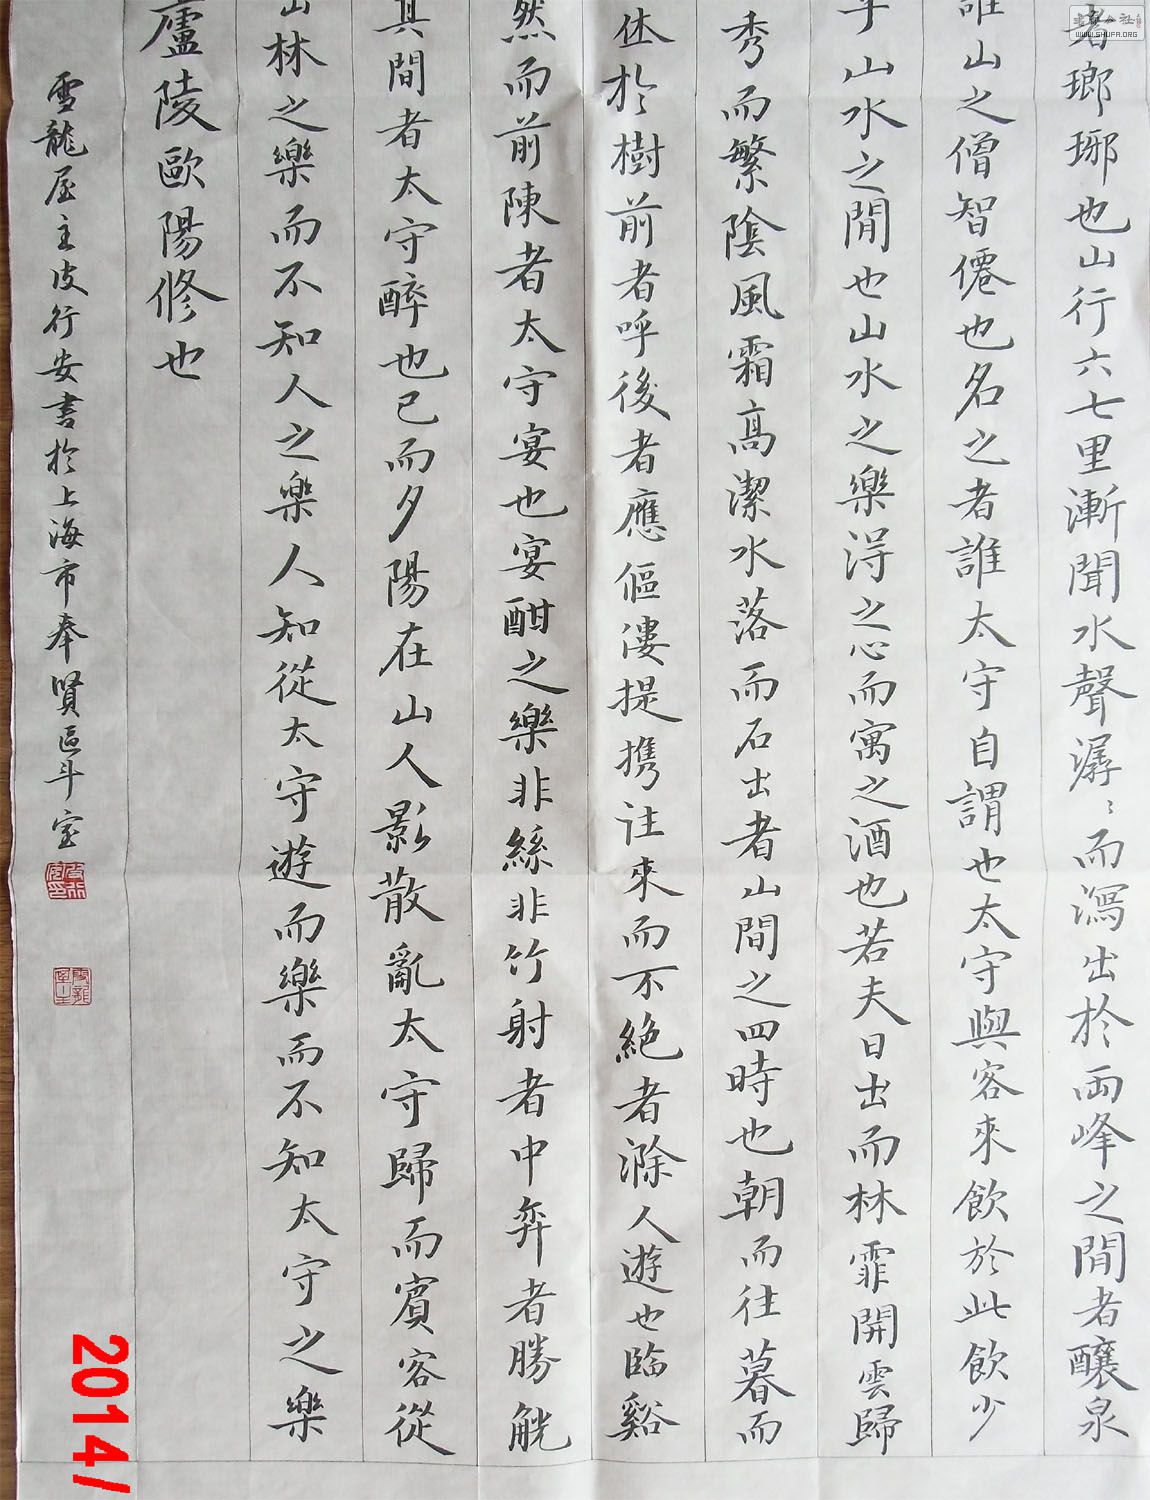 者瑯琊也山行六七里漸聞水聲潺〻而瀉出於兩峰之間者釀泉
誰山之僧智僊也名之者誰太守自謂也太守與客來飲於此飲少
乎山水之間也山水之樂得之心而寓之酒也若夫日出而林霏開雲歸
秀而繁陰風霜高潔水落而石出者山間之四時也朝而往暮而
休於樹前者呼後者應傴僂提携往來而不絕者滁人遊也臨谿
然而前陳者太守宴也宴酣之樂非絲非竹射者中弈者勝觥
其間者太守醉也已而夕陽在山人影散亂太守歸而賓客從
山林之樂而不知人之樂人知從太守遊而樂而不知太守之樂
廬陵歐陽修也
雪龍屋主皮行安書於上海市奉賢區斗室
2014/
書法公社
WWW.SHUFA.ORG